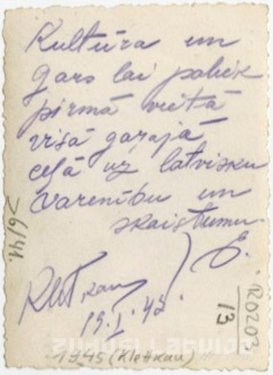 Kultūra un
gars lai paliek
pirmā vietā
visā garajā
ceļā uz latvisku
varenību un
skaistumu.
E.
Klētkau
19.I.45.
1945 (Kletkau)
26/41
120202
13